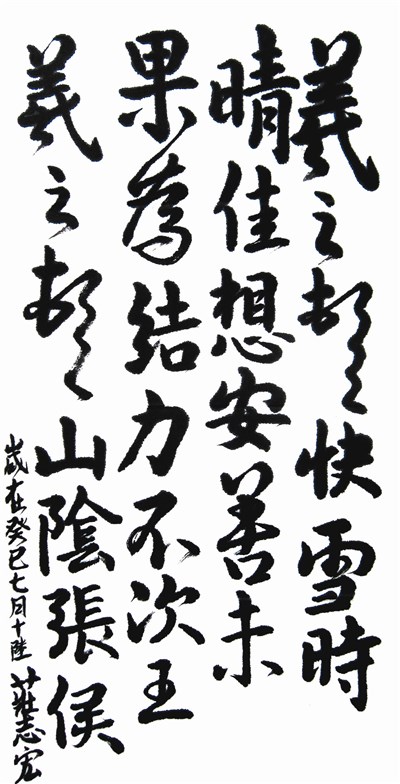 羲之頓首快雪時
晴佳想安善未
果為結力不次王
羲之頓首山陰張侯
歲在癸巳七月十陸莊志宏